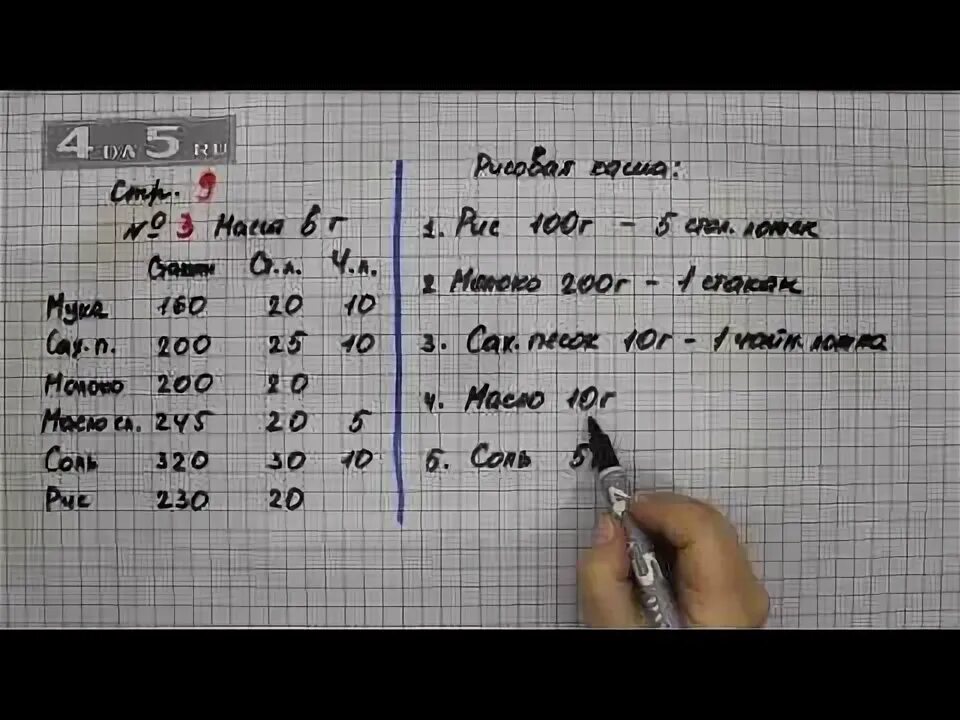 4 DA 5 RU
Стр. 9
№ 3 Масса в г
Стакан Ст.л. Ч.л.
Мука 160 20 10
Сах.п. 200 25 10
Молоко 200 20
Масло сл. 245 20 5
Соль 320 30 10
Рис 230 20
Рисовая каша:
1. Рис 100г - 5 стол. ложек
2 Молоко 200г - 1 стакан
3. Сах. песок 10г - 1 чайн. ложка
4. Масло 10г
5. Соль 5